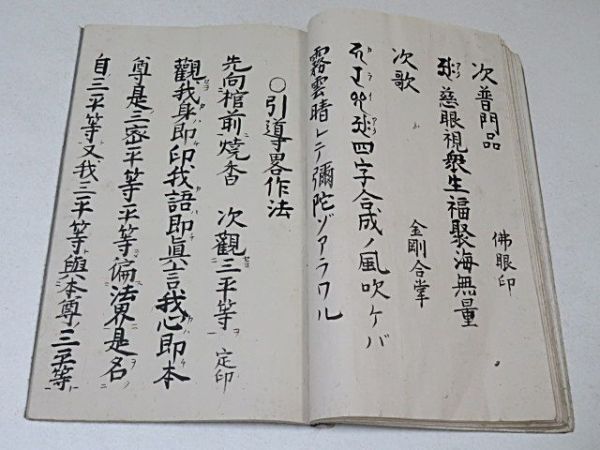 次普門品 佛眼印
慈眼視衆生福聚海無量
次歌 金剛合掌
四字合成ノ風吹ケバ
霧雲晴レテ彌陀ゾアラワル
○引導畧作法
先向棺前燒香 次觀三平等 定印
觀我身即印我語即眞言我心即本
尊是三密平等平等偏法界是名
自三平等又我三平等與本尊三平等